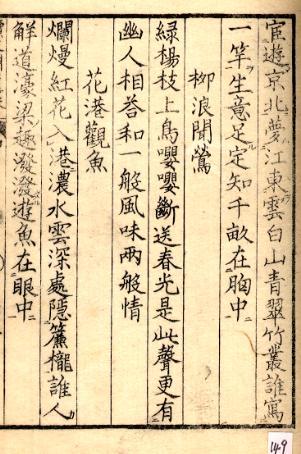 宦遊京北夢江東雲白山青翠竹叢誰寫
一竿生意足定知千畝在胸中
柳浪聞鶯
緑楊枝上鳥嚶嚶斷送春光是此聲更有
幽人相荅和一般風味两般情
花港觀魚
爛熳紅花入港濃水雲深處隠簾櫳誰人
解道濠梁趣潑潑遊魚在眼中
149